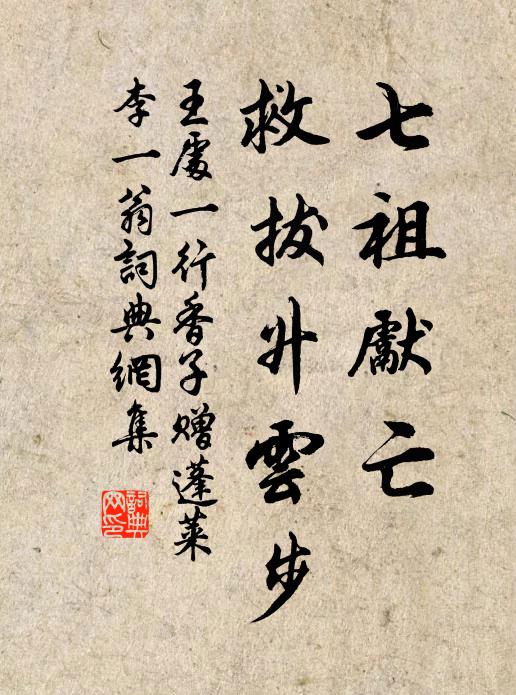 七祖獻亡
救拔升雲步
王處一行香子赠蓬萊
李一翁詞典網集
詞典網印